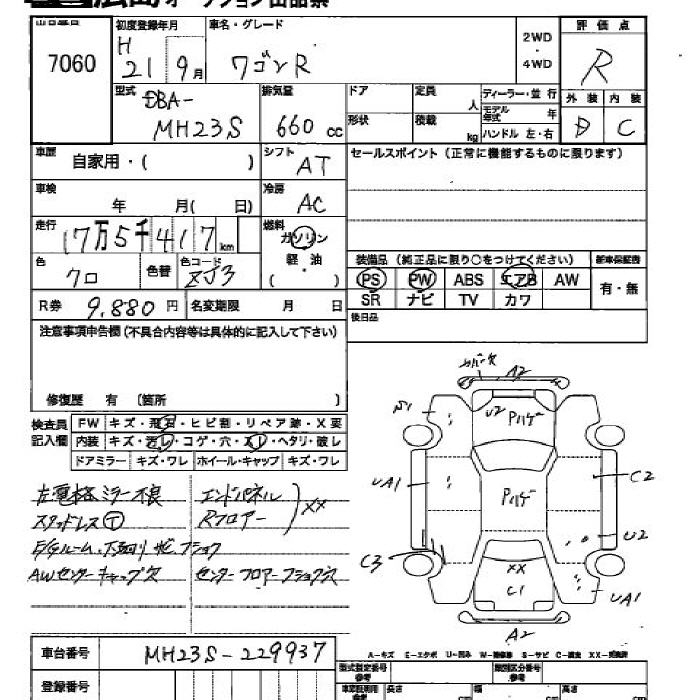 オークション出品票
出品番号 初度登録年月 車名・グレード 2WD ・ 4WD 評価点
7060 H 21 9月 ワゴンR R
型式 DBA- MH23S 排気量 660 cc ドア 定員 人 ディーラー・並行 外装 内装
形状 積載 kg モデル年式 年 ハンドル 左・右 D C
車歴 自家用・( ) シフト AT セールスポイント(正常に機能するものに限ります)
車検 年 月( 日) 冷房 AC
走行 17万5千417km 燃料 ガソリン
色 クロ 色替 色コード ZJ3 軽油 ( ・ )
装備品 (純正品に限り○をつけてください) 新車保証書
PS PW ABS エアB AW 有・無
SR ナビ TV カワ
R券 9,880 円 名変期限 月 日
後日品
注意事項申告欄(不具合内容等は具体的に記入して下さい)
修復歴 有 〔箇所 〕
検査員記入欄 FW キズ・飛石・ヒビ割・リペア跡・X要
内装 キズ・汚レ・コゲ・穴・スレ・ヘタリ・破レ
ドアミラー キズ・ワレ ホイール・キャップ キズ・ワレ
左電格ミラー不良 エンドパネル
スタッドレスⓉ Rフロアー XX
E/Gルーム、下廻りサビ、フショク
AWセンターキャップ欠 センターフロアーフショク穴
カバー欠 A2
S1 U2 Pハゲ
UA1 Pハゲ C2
C3 U2
XX
C1 UA1
A2
A-キズ E-エクボ U-凹み W-補修跡 S-サビ C-腐食 XX-交換済
車台番号 MH23S-229937
登録番号
型式指定番号 参考 類別区分番号 参考
車庫証明用 参考 長さ cm 幅 cm 高さ cm